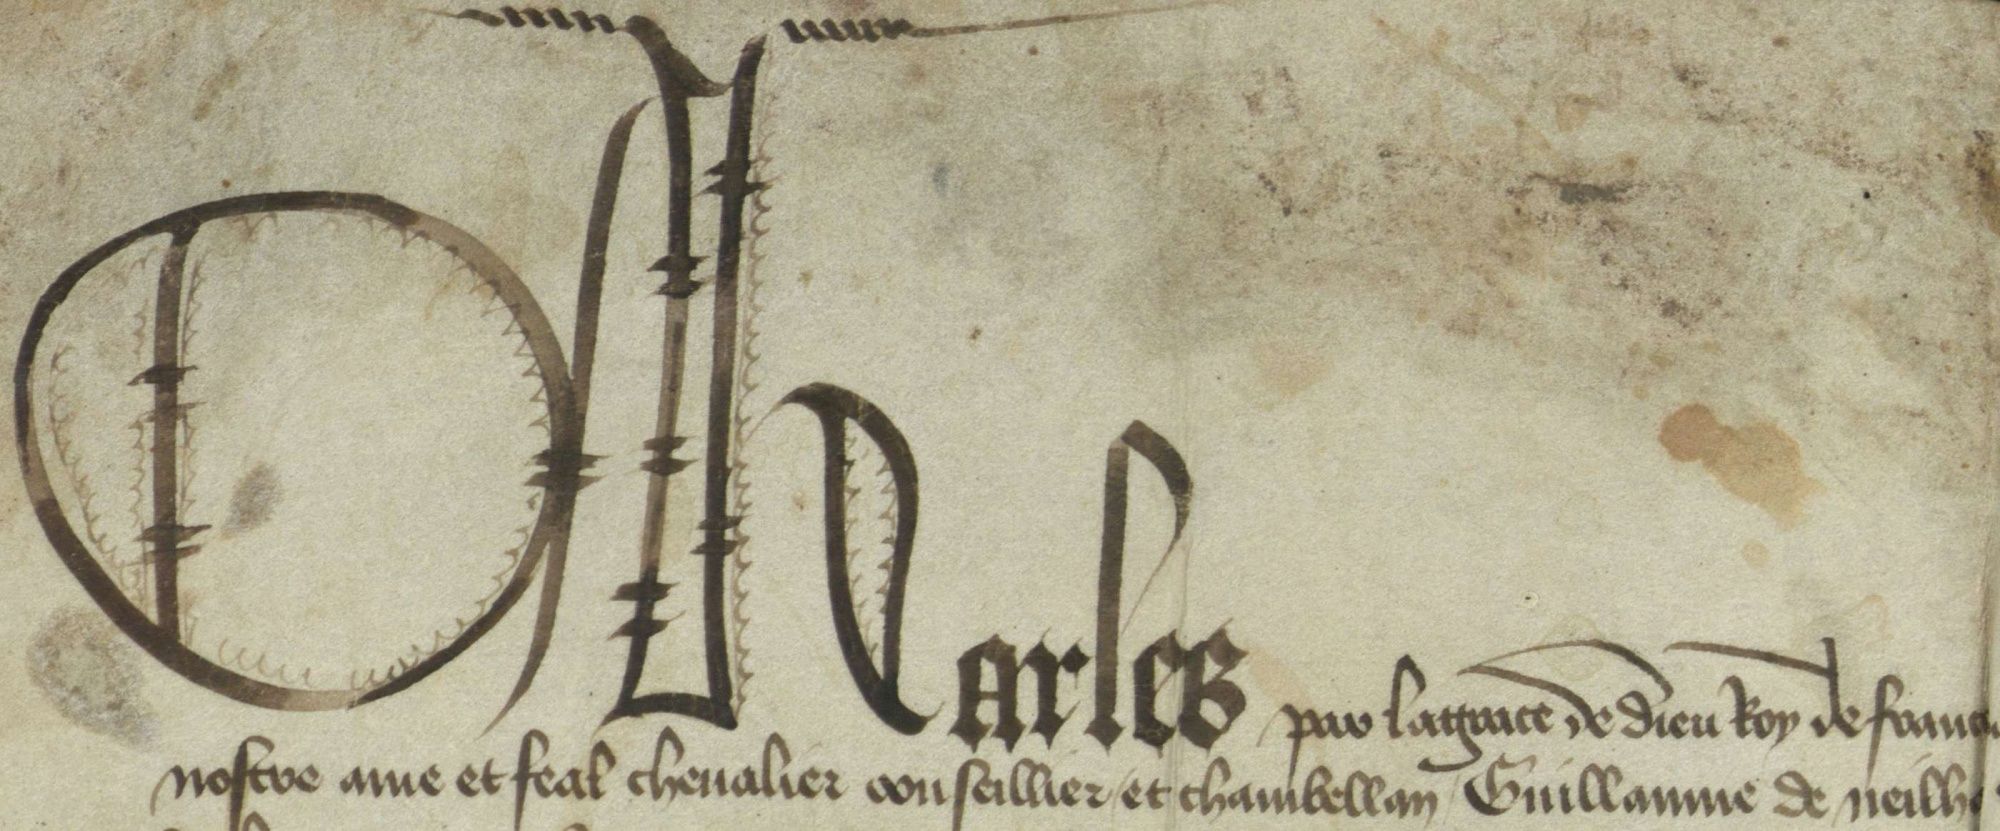 Charles par la grace de dieu Roy de france
nostre ame et feal chevalier conseillier et chambellan Guillaume de neilh